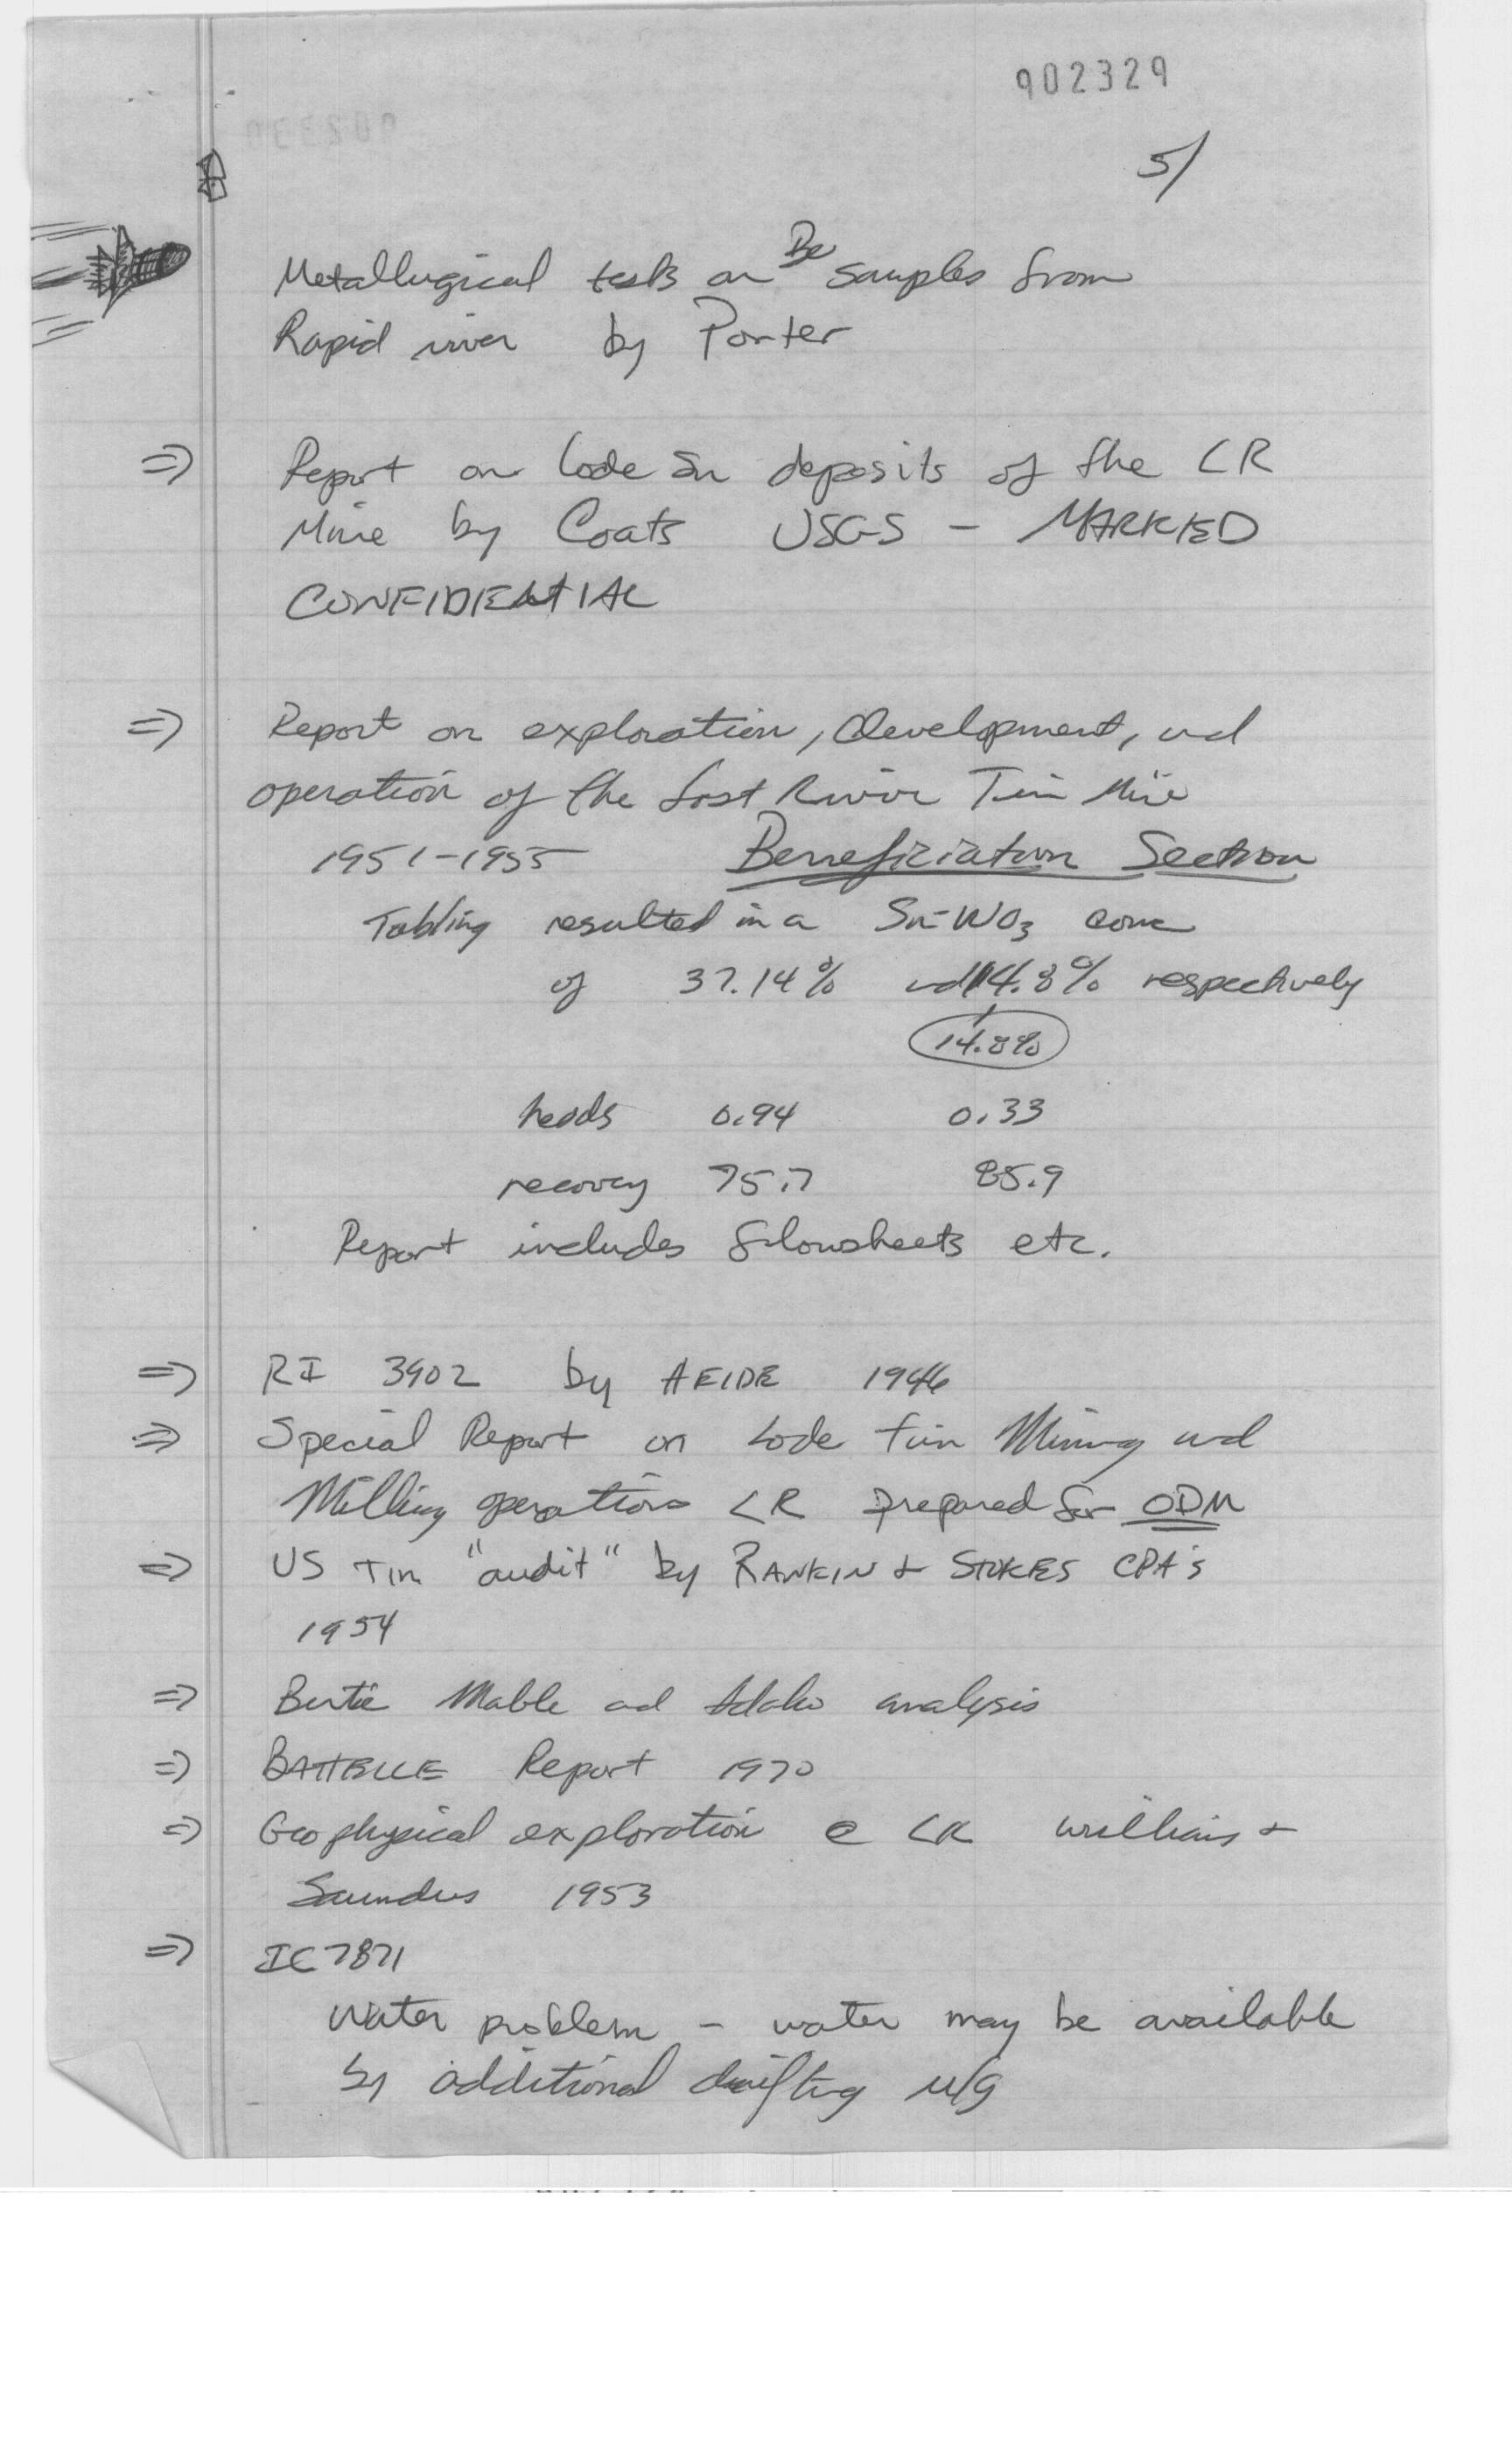 902329
5/
Metallugical tests on Be samples from
Rapid river by Porter
=> Report on lode Sn deposits of the LR
Mine by Coats USGS - MARKED
CONFIDENTIAL
=> Report on exploration, development, and
operation of the Lost River Tin Mine
1951-1955 Beneficiation Section
Tabling resulted in a Sn-WO3 conc
of 37.14% and 14.8% respectively
14.8%
heads 0.94 0.33
recovery 75.7 85.9
Report includes flowsheets etc.
=> RI 3902 by HEIDE 1946
=> Special Report on Lode tin Mining and
Milling operations LR prepared for ODM
=> US Tin "audit" by RANKIN + STOKES CPA's
1954
=> Mable and Idaho analysis
=> BATTELLE Report 1970
=> Geophysical exploration @ LR Williams +
Saunders 1953
=> IC 7871
Water problem - water may be available
by additional drifting u/g